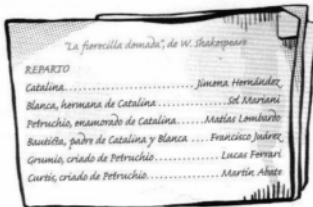 "La fierecilla domada", de W. Shakespeare
REPARTO
Catalina.................................Jimena Hernández
Blanca, hermana de Catalina...............Sol Mariani
Petruchio, enamorado de Catalina.......Matías Lombardo
Bautista, padre de Catalina y Blanca....Francisco Juárez
Grumio, criado de Petruchio...............Lucas Ferrari
Curtis, criado de Petruchio...............Martín Abate